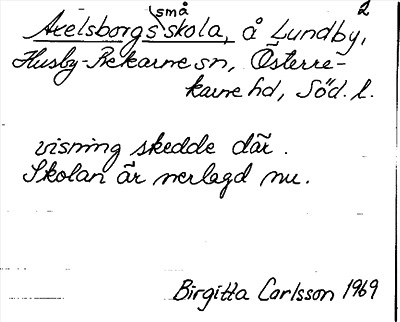 2
Axelsborgs småskola, å Lundby,
Husby-Rekarne sn, Österre-
karne hd, Söd. l.
visning skedde där.
Skolan är nerlagd nu.
Birgitta Carlsson 1969